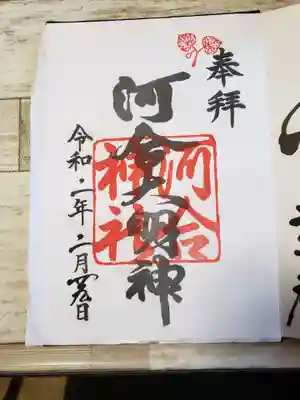 奉拝
河合大明神
河合
神社
令和二年二月
日